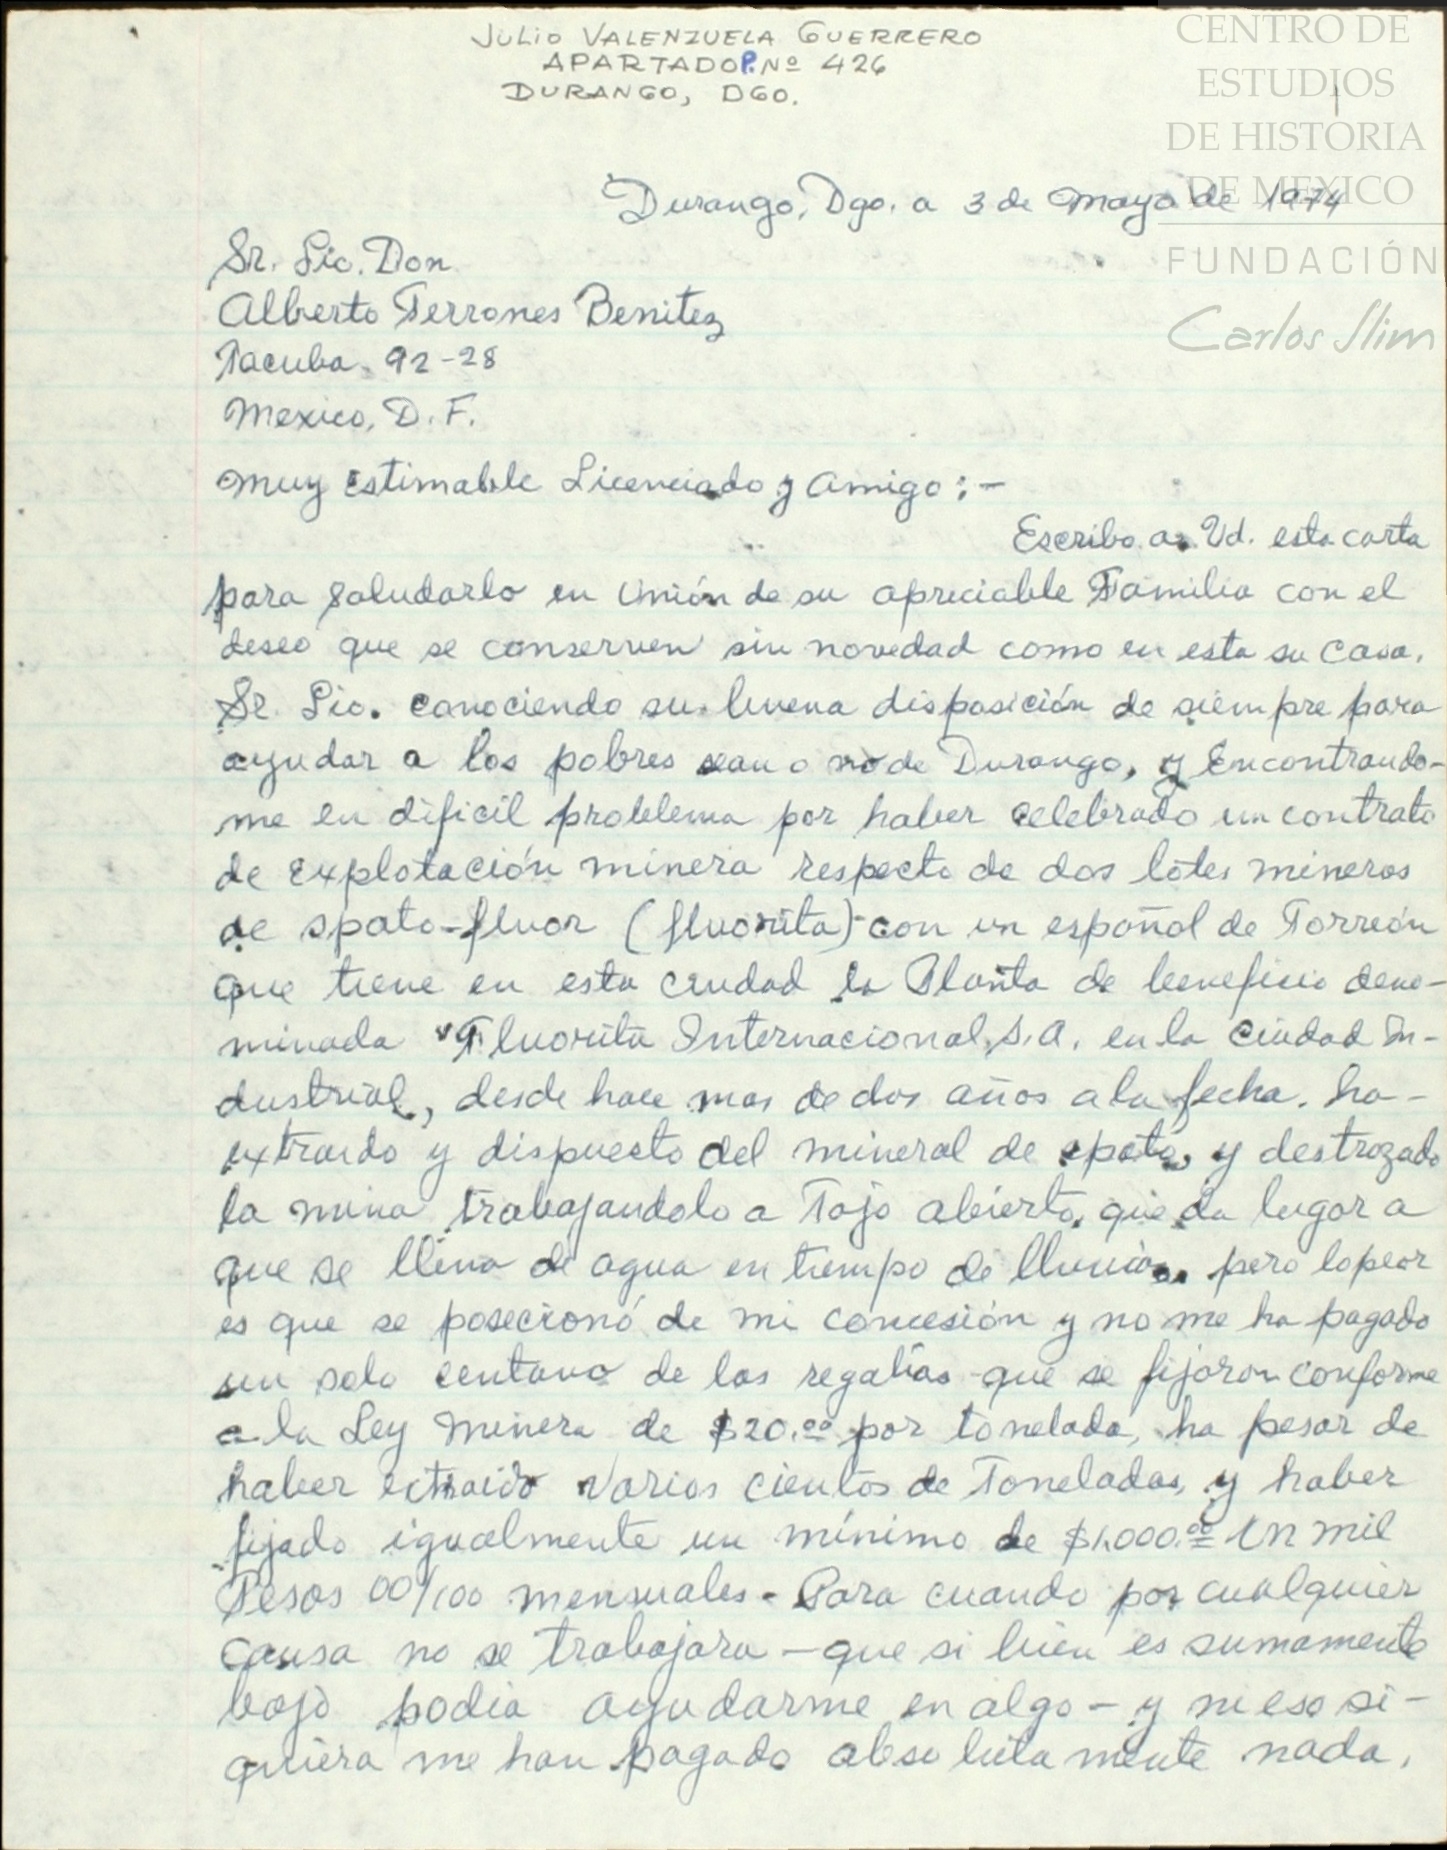 JULIO VALENZUELA GUERRERO
APARTADO P. Nº 426
DURANGO, DGO.
1
CENTRO DE
ESTUDIOS
DE HISTORIA
DE MEXICO
FUNDACIÓN
Carlos Slim
Durango, Dgo. a 3 de Mayo de 1974
Sr. Lic. Don
Alberto Terrones Benitez
Tacuba 92-28
Mexico, D. F.
Muy Estimable Licenciado y Amigo:-
Escribo a Vd. esta carta
para saludarlo en Unión de su apreciable Familia con el
deseo que se conserven sin novedad como en esta su casa.
Sr. Lic. conociendo su buena disposición de siempre para
ayudar a los pobres sean o no de Durango, y Encontrando-
me en dificil problema por haber celebrado un contrato
de explotación minera respecto de dos lotes mineros
de spato-fluor (fluorita) con un español de Torreón
que tiene en esta ciudad la Planta de beneficio deno-
minada "Fluorita Internacional, S.A. en la Ciudad In-
dustrial, desde hace mas de dos años a la fecha. ha-
extraido y dispuesto del mineral de spato, y destrozado
la mina trabajandolo a Tajo abierto, que da lugar a
que se llena de agua en tiempo de lluvias. pero lo peor
es que se posecionó de mi concesión y no me ha pagado
un solo centavo de las regalías que se fijaron conforme
a la Ley Minera de $20.00 por tonelada, ha pesar de
haber extraido varios cientos de Toneladas, y haber
fijado igualmente un mínimo de $1.000.00 Un mil
Pesos 00/100 mensuales. Para cuando por cualquier
causa no se trabajara - que si bien es sumamente
bajo podia ayudarme en algo - y ni eso si-
quiera me han pagado absolutamente nada.